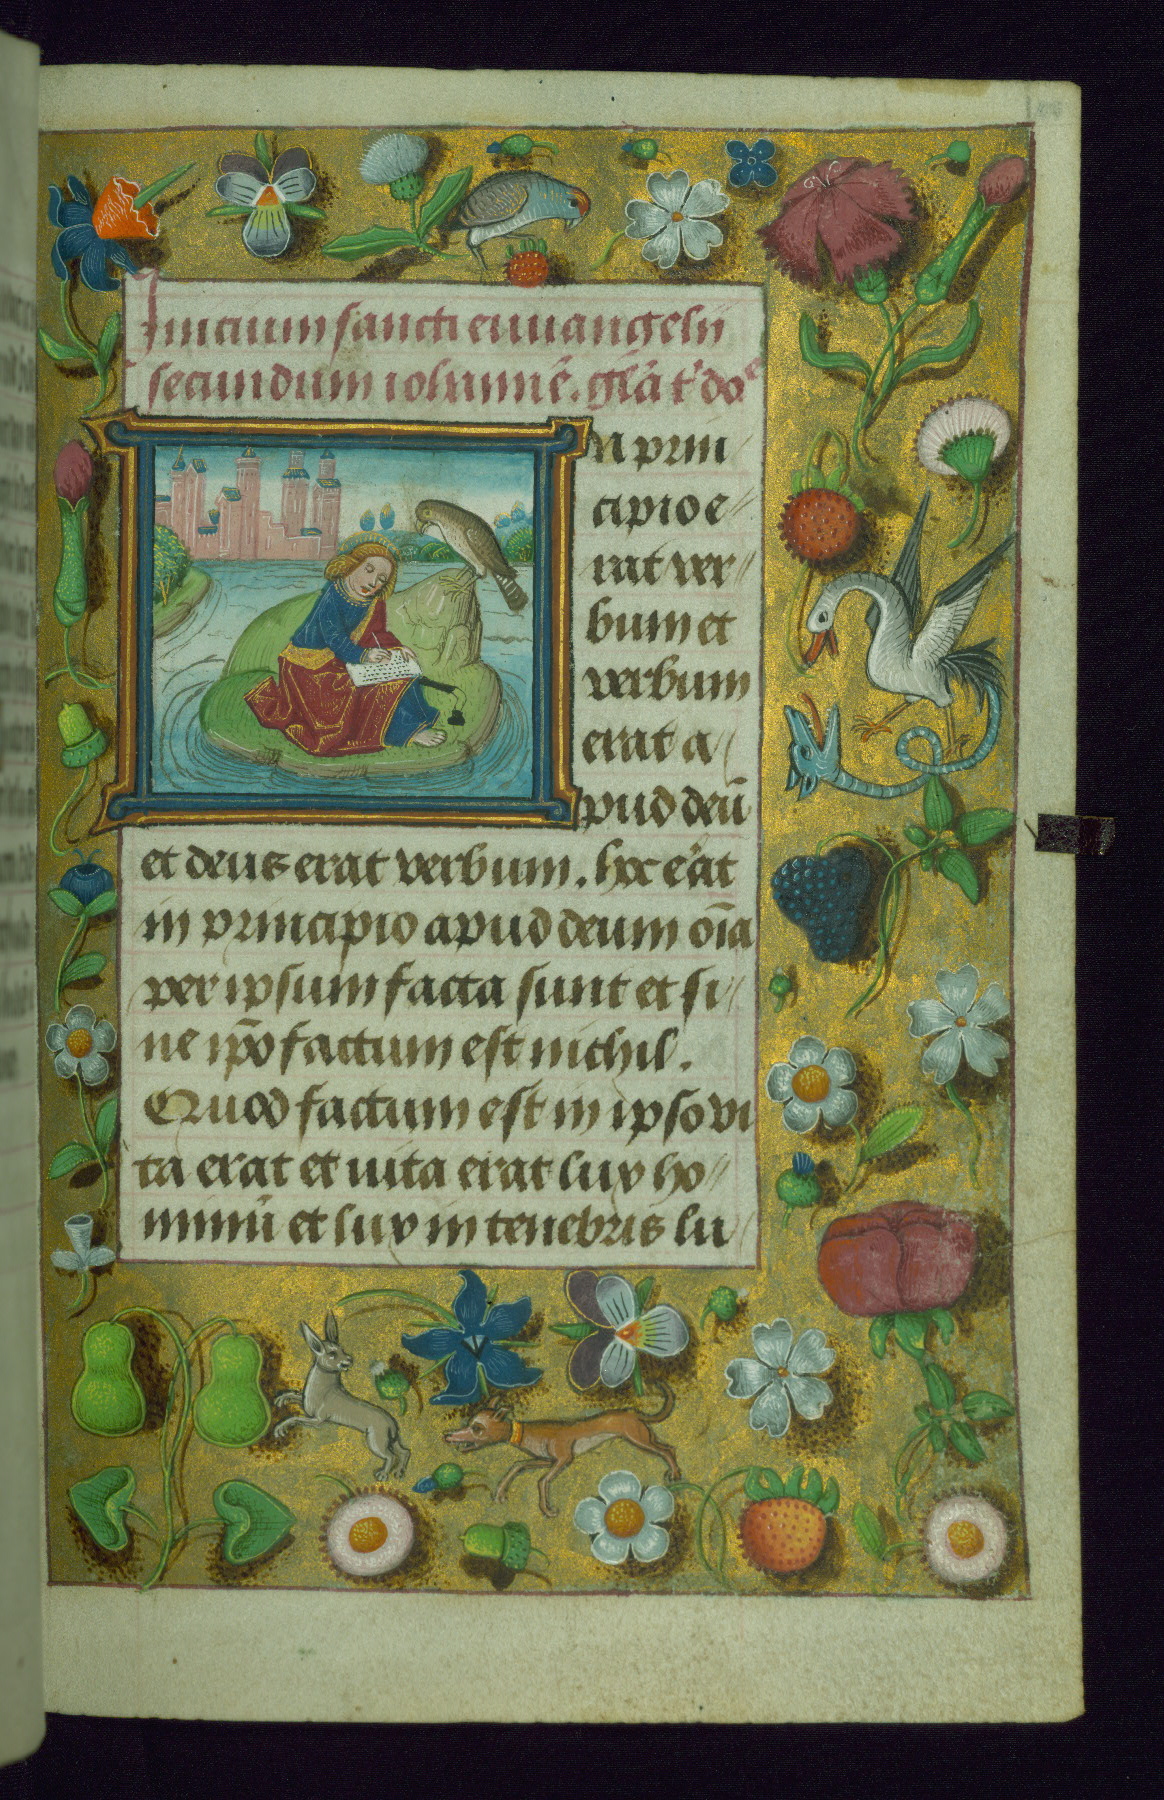 Inicium sancti euuangelii
secundum iohannē. gl̄a t' do^e
n prin
cipio e
rat ver
bum et
verbum
erat a
pud deū
et deus erat verbum. hoc e'at
in principio apud deum oīa
per ipsum facta sunt et si
ne ip̄o factum est nichil.
Quod factum est in ipso vi
ta erat et uita erat lux ho
minū et lux in tenebris lu